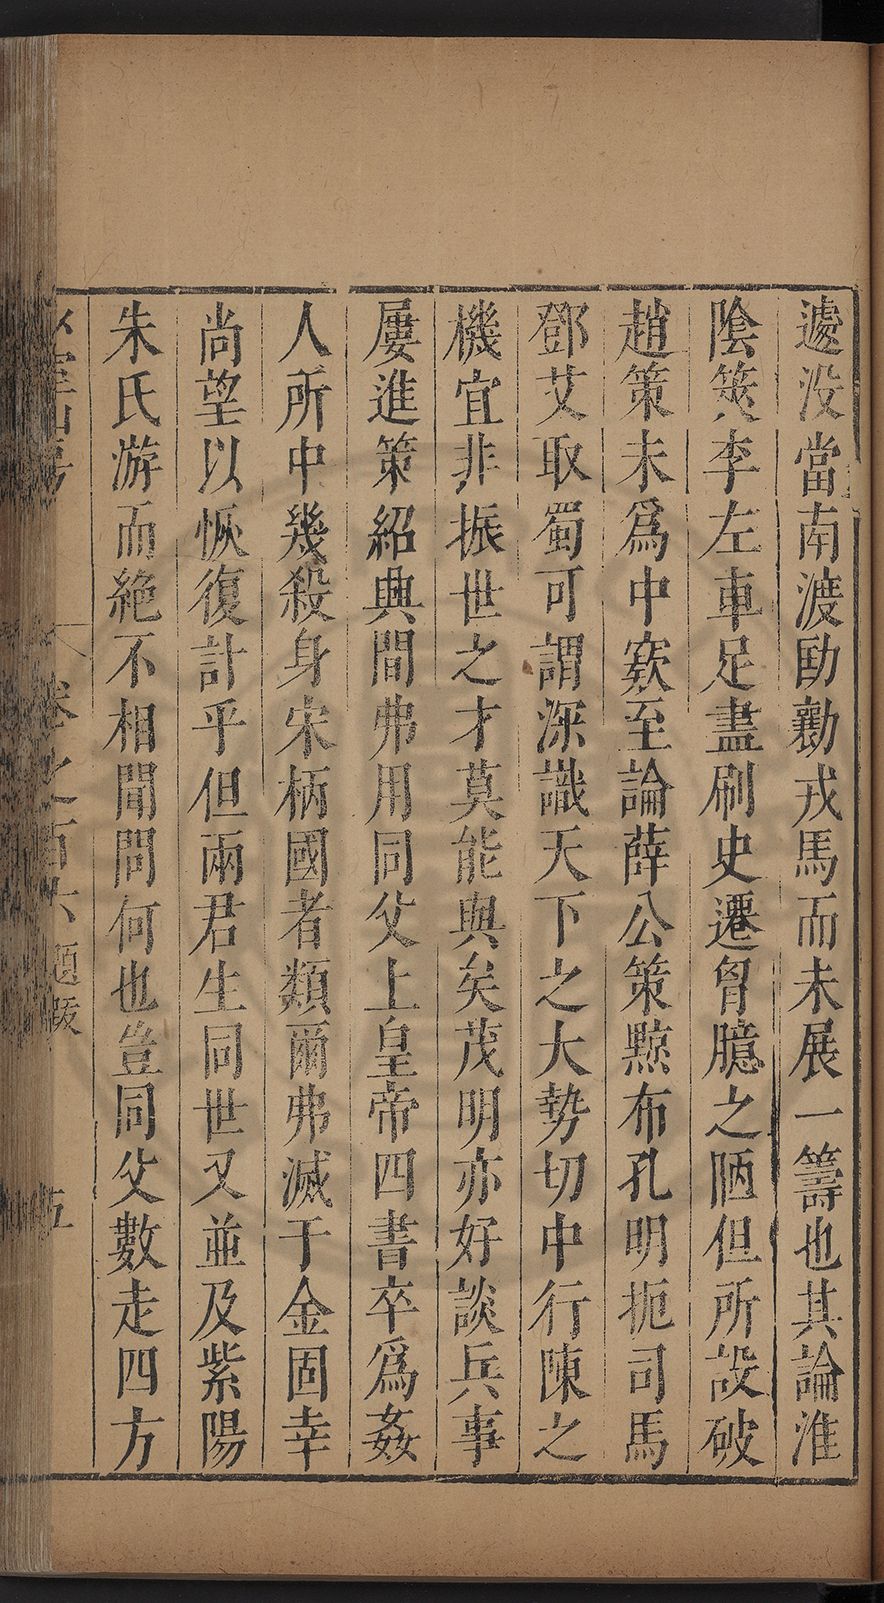 遽没當南渡劻勷戎馬而未展一籌也其論淮
陰筴李左車足盡刷史遷胷臆之陋但所設破
趙策未爲中窾至論薛公策黥布孔明扼司馬
鄧艾取蜀可謂深識天下之大勢切中行陳之
機宜非振世之才莫能與矣茂明亦好談兵事
屢進策紹興間弗用同父上皇帝四書卒爲姦
人所中幾殺身宋柄國者類爾弗滅于金固幸
尚望以恢復計乎但兩君生同世又並及紫陽
朱氏游而絶不相聞問何也豈同父數走四方
山房
卷之百六 題跋
五